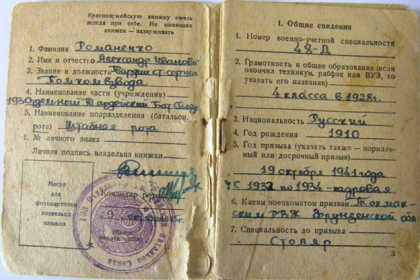 Красноармейскую книжку иметь
всегда при себе. Не имеющих
книжек — задерживать
1. Фамилия Романенко
2. Имя и отчество Александр Иванович
3. Звание и должность Гвардии ст. серж.
4. Наименование части (учреждения)
5. Наименование подразделения (батальон,
рота) Штабная рота
6. № личного знака
Личная подпись владельца книжки
Место
для
фотокарточки
владельца
книжки
Командир
I. Общие сведения
1. Номер военно-учетной специальности
48-Д
2. Грамотность и общее образование (если
окончил техникум, рабфак или ВУЗ, то
указать его название)
4 класса в 1928г.
3. Национальность Русский
4. Год рождения 1910
5. Год призыва (указать также — нормаль-
ный или досрочный призыв)
19 октября 1941 года
с 1932 по 1934 - кадровая
6. Каким военкоматом призван Токмак-
ским РВК Фрунзенской обл
7. Специальность до призыва
Столяр
3